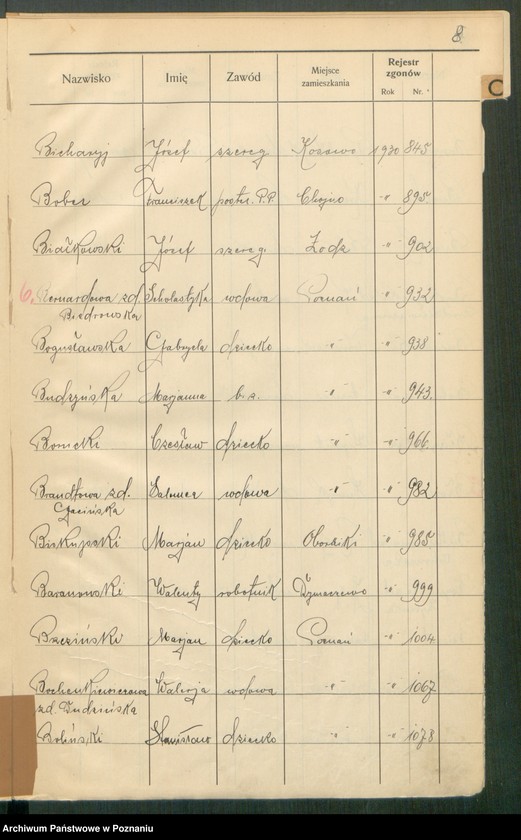 8
Nazwisko Imię Zawód Miejsce zamieszkania Rejestr zgonów
Rok Nr.
C
Józef szereg 1930 845
Bober Franciszek poster. P.P. Chojno -"- 895
Białkowski Józef szereg. Łodz -"- 902
6. Bernardowa zd. Scholastyka wdowa Poznań -"- 932
Biedrowska
Bogusławska Gabryela dziecko -"- -"- 938
Budzyńska Marjanna b. z. -"- -"- 943.
Czesław dziecko -"- -"- 966
Brandtowa zd. Salomea wdowa -"- -"- 982
Gacińska
Biskupski Marjan dziecko Oborniki -"- 985
Baranowski Walenty robotnik -"- 999
Brzeziński Marjan dziecko Poznań -"- 1004
Bochenkiewiczowa Walerja wdowa -"- -"- 1067
zd.
Boliński Stanisław dziecko -"- -"- 1078
Archiwum Państwowe w Poznaniu